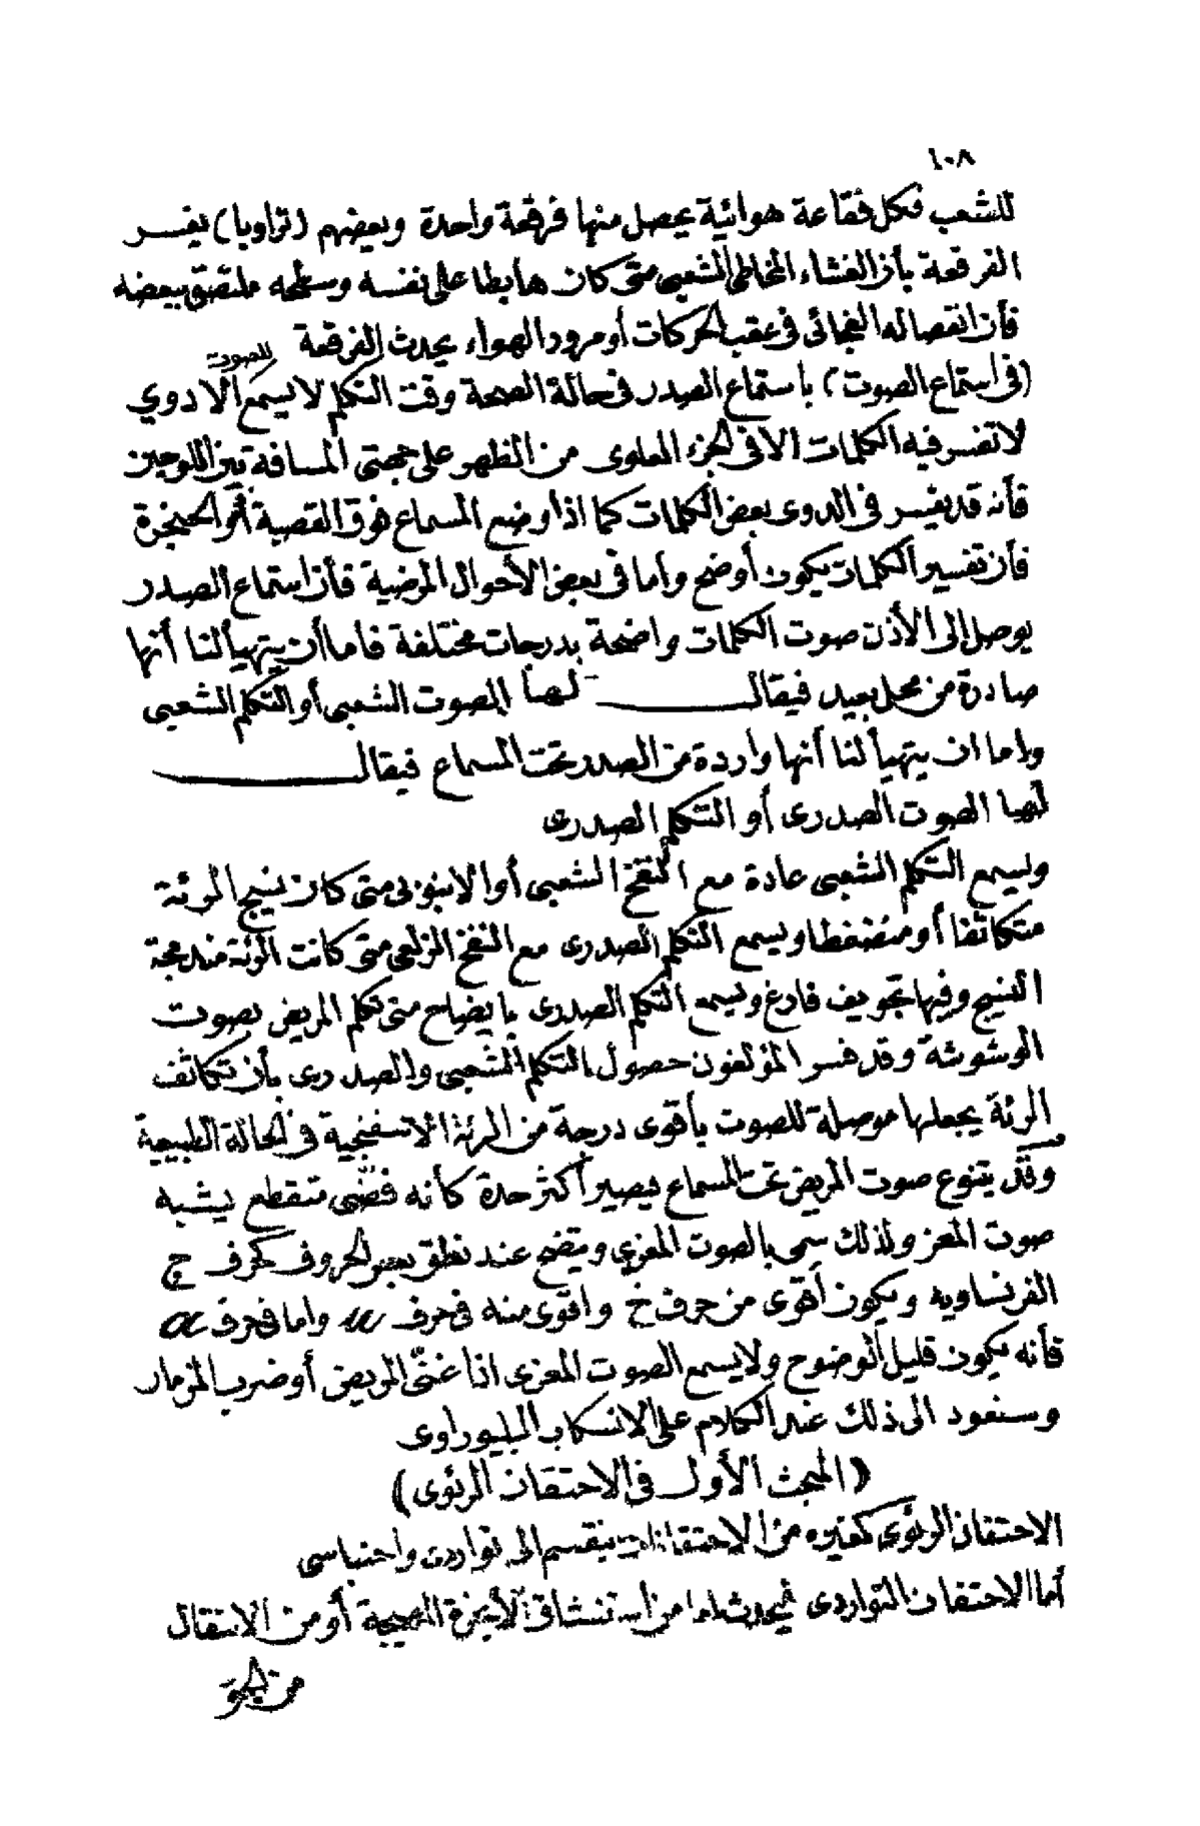 ١٠٨
للشعب فكل فقاعة هوائية يحصل منها فرقعة واحدة وبعضهم (تراوبا) يفسر
الفرقعة بأن الغشاء المخاطى الشعبى متى كان هابطا على نفسه وسطحه ملتصق ببعضه
فأن انفصاله الفجائى فى عقب الحركات أو مرور الهواء يحدث الفرقعة
(فى استماع الصوت) باستماع الصدر فى حالة الصحة وقت التكلم لا يسمع الا دوي للصوت
لا تفسر فيه الكلمات الا فى الجزء العلوى من الظهر على جهتى المسافة بين اللوحين
فأنه قد يفسر فى الدوى بعض الكلمات كما اذا وضع المسماع فوق القصبة أو الحنجرة
فأن تفسير الكلمات يكون أوضح وأما فى بعض الأحوال المرضية فأن استماع الصدر
يوصل الى الأذن صوت الكلمات واضحة بدرجات مختلفة فأما أن يتهيأ لنا أنها
صادرة من محل بعيد فيقال لهـا الصوت الشعبى أو التكلم الشعبى
واما ان يتهيأ لنا أنها واردة من الصدر تحت المسماع فيقال
لهـا الصوت الصدرى أو التكلم الصدرى
ويسمع التكلم الشعبى عادة مع النفخ الشعبى أو الانبوبى متى كان نسيج الرئة
متكاثفا أو منضغطا ويسمع التكلم الصدرى مع النفخ الزلعى متى كانت الرئة مندمجة
النسيج وفيها تجويف فارغ ويسمع التكلم الصدرى بايضاح متى تكلم المريض بصوت
الوشوشة وقد فسر المؤلفون حصول التكلم الشعبى والصدرى بأن تكاثف
الرئة يجعلها موصلة للصوت بأقوى درجة من الرئة الاسفنجية فى الحالة الطبيعية
وقد يتنوع صوت المريض تحت المسماع فيصير أكثر حدة كأنه فضى متقطع يشبه
صوت المعز ولذلك سمى بالصوت المعزى ويتضح عند نطق بعض الحروف كحرف ج
الفرنساوية ويكون أقوى من حرف خ واقوى منه فى حرف واما فى حرف a
فأنه يكون قليل الوضوح ولا يسمع الصوت المعزى اذا غنّى المريض أو ضرب المزمار
وسنعود الى ذلك عند الكلام على الانسكاب البليوراوى
(المبحث الأول فى الاحتقان الرئوى)
الاحتقان الرئوى كغيره من الاحتقانات ينقسم الى تواردى واحتباسى
أما الاحتقان التواردى فيحدث اما من استنشاق الأبخرة المهيجة أو من الانتقال
من الجو